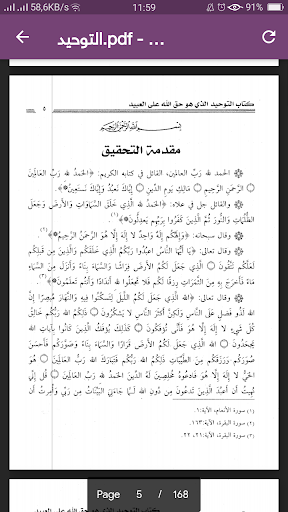 58,6K/s
11:59
91%
التوحيد.pdf - ...
كتاب التوحيد الذي هو حق الله على العبيد
٥
بسم الله الرحمن الرحيم
مقدمة التحقيق
الحمد لله رب العالمين، القائل في كتابه الكريم: ﴿الحَمْدُ للهِ رَبِّ العَالَمِينَ
الرَّحْمَنِ الرَّحِيمِ مَالِكِ يَوْمِ الدِّينِ إِيَّاكَ نَعْبُدُ وَإِيَّاكَ نَسْتَعِينُ﴾.
والقائل جل في علاه: ﴿الحَمْدُ للهِ الَّذِي خَلَقَ السَّمَاوَاتِ وَالأَرْضَ وَجَعَلَ
الظُّلُمَاتِ وَالنُّورَ ثُمَّ الَّذِينَ كَفَرُوا بِرَبِّهِمْ يَعْدِلُونَ﴾(١).
وقال سبحانه: ﴿وَإِلَهُكُمْ إِلَهٌ وَاحِدٌ لَا إِلَهَ إِلَّا هُوَ الرَّحْمَنُ الرَّحِيمُ﴾(٢).
وقال تعالى: ﴿يَا أَيُّهَا النَّاسُ اعْبُدُوا رَبَّكُمُ الَّذِي خَلَقَكُمْ وَالَّذِينَ مِن قَبْلِكُمْ
لَعَلَّكُمْ تَتَّقُونَ الَّذِي جَعَلَ لَكُمُ الأَرْضَ فِرَاشًا وَالسَّمَاءَ بِنَاءً وَأَنزَلَ مِنَ السَّمَاءِ
مَاءً فَأَخْرَجَ بِهِ مِنَ الثَّمَرَاتِ رِزْقًا لَكُمْ فَلَا تَجْعَلُوا للهِ أَندَادًا وَأَنتُمْ تَعْلَمُونَ﴾(٣).
وقال تعالى: ﴿اللهُ الَّذِي جَعَلَ لَكُمُ اللَّيْلَ لِتَسْكُنُوا فِيهِ وَالنَّهَارَ مُبْصِرًا إِنَّ
اللهَ لَذُو فَضْلٍ عَلَى النَّاسِ وَلَكِنَّ أَكْثَرَ النَّاسِ لَا يَشْكُرُونَ ذَلِكُمُ اللهُ رَبُّكُمْ خَالِقُ
كُلِّ شَيْءٍ لَا إِلَهَ إِلَّا هُوَ فَأَنَّى تُؤْفَكُونَ كَذَلِكَ يُؤْفَكُ الَّذِينَ كَانُوا بِآيَاتِ اللهِ
يَجْحَدُونَ اللهُ الَّذِي جَعَلَ لَكُمُ الأَرْضَ قَرَارًا وَالسَّمَاءَ بِنَاءً وَصَوَّرَكُمْ فَأَحْسَنَ
صُوَرَكُمْ وَرَزَقَكُم مِّنَ الطَّيِّبَاتِ ذَلِكُمُ اللهُ رَبُّكُمْ فَتَبَارَكَ اللهُ رَبُّ العَالَمِينَ هُوَ
الْحَيُّ لَا إِلَهَ إِلَّا هُوَ فَادْعُوهُ مُخْلِصِينَ لَهُ الدِّينَ الحَمْدُ للهِ رَبِّ العَالَمِينَ قُلْ إِنِّي
نُهِيتُ أَنْ أَعْبُدَ الَّذِينَ تَدْعُونَ مِن دُونِ اللهِ لَمَّا جَاءَنِيَ البَيِّنَاتُ مِن رَّبِّي وَأُمِرْتُ أَنْ
(١) سورة الأنعام، الآية:١.
(٢) سورة البقرة، الآية:١٦٣.
(٣) سورة البقرة، الآيات: ٢١، ٢٢.
Page 5 / 168
كتاب التوحيد الذي هو حق الله على العبيد